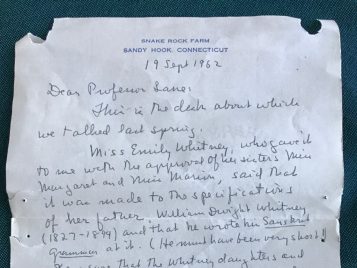 SNAKE ROCK FARM
SANDY HOOK, CONNECTICUT
19 Sept 1962
Dear Professor Lane:
This is the desk about which
we talked last spring.
Miss Emily Whitney, who gave it
to me with the approval of her sisters Miss
Margaret and Miss Marian, said that
it was made to the specifications
of her father, William Dwight Whitney
(1827-1894) and that he wrote his Sanskrit
Grammar at it. (He must have been very short!)
that the Whitney daughters and